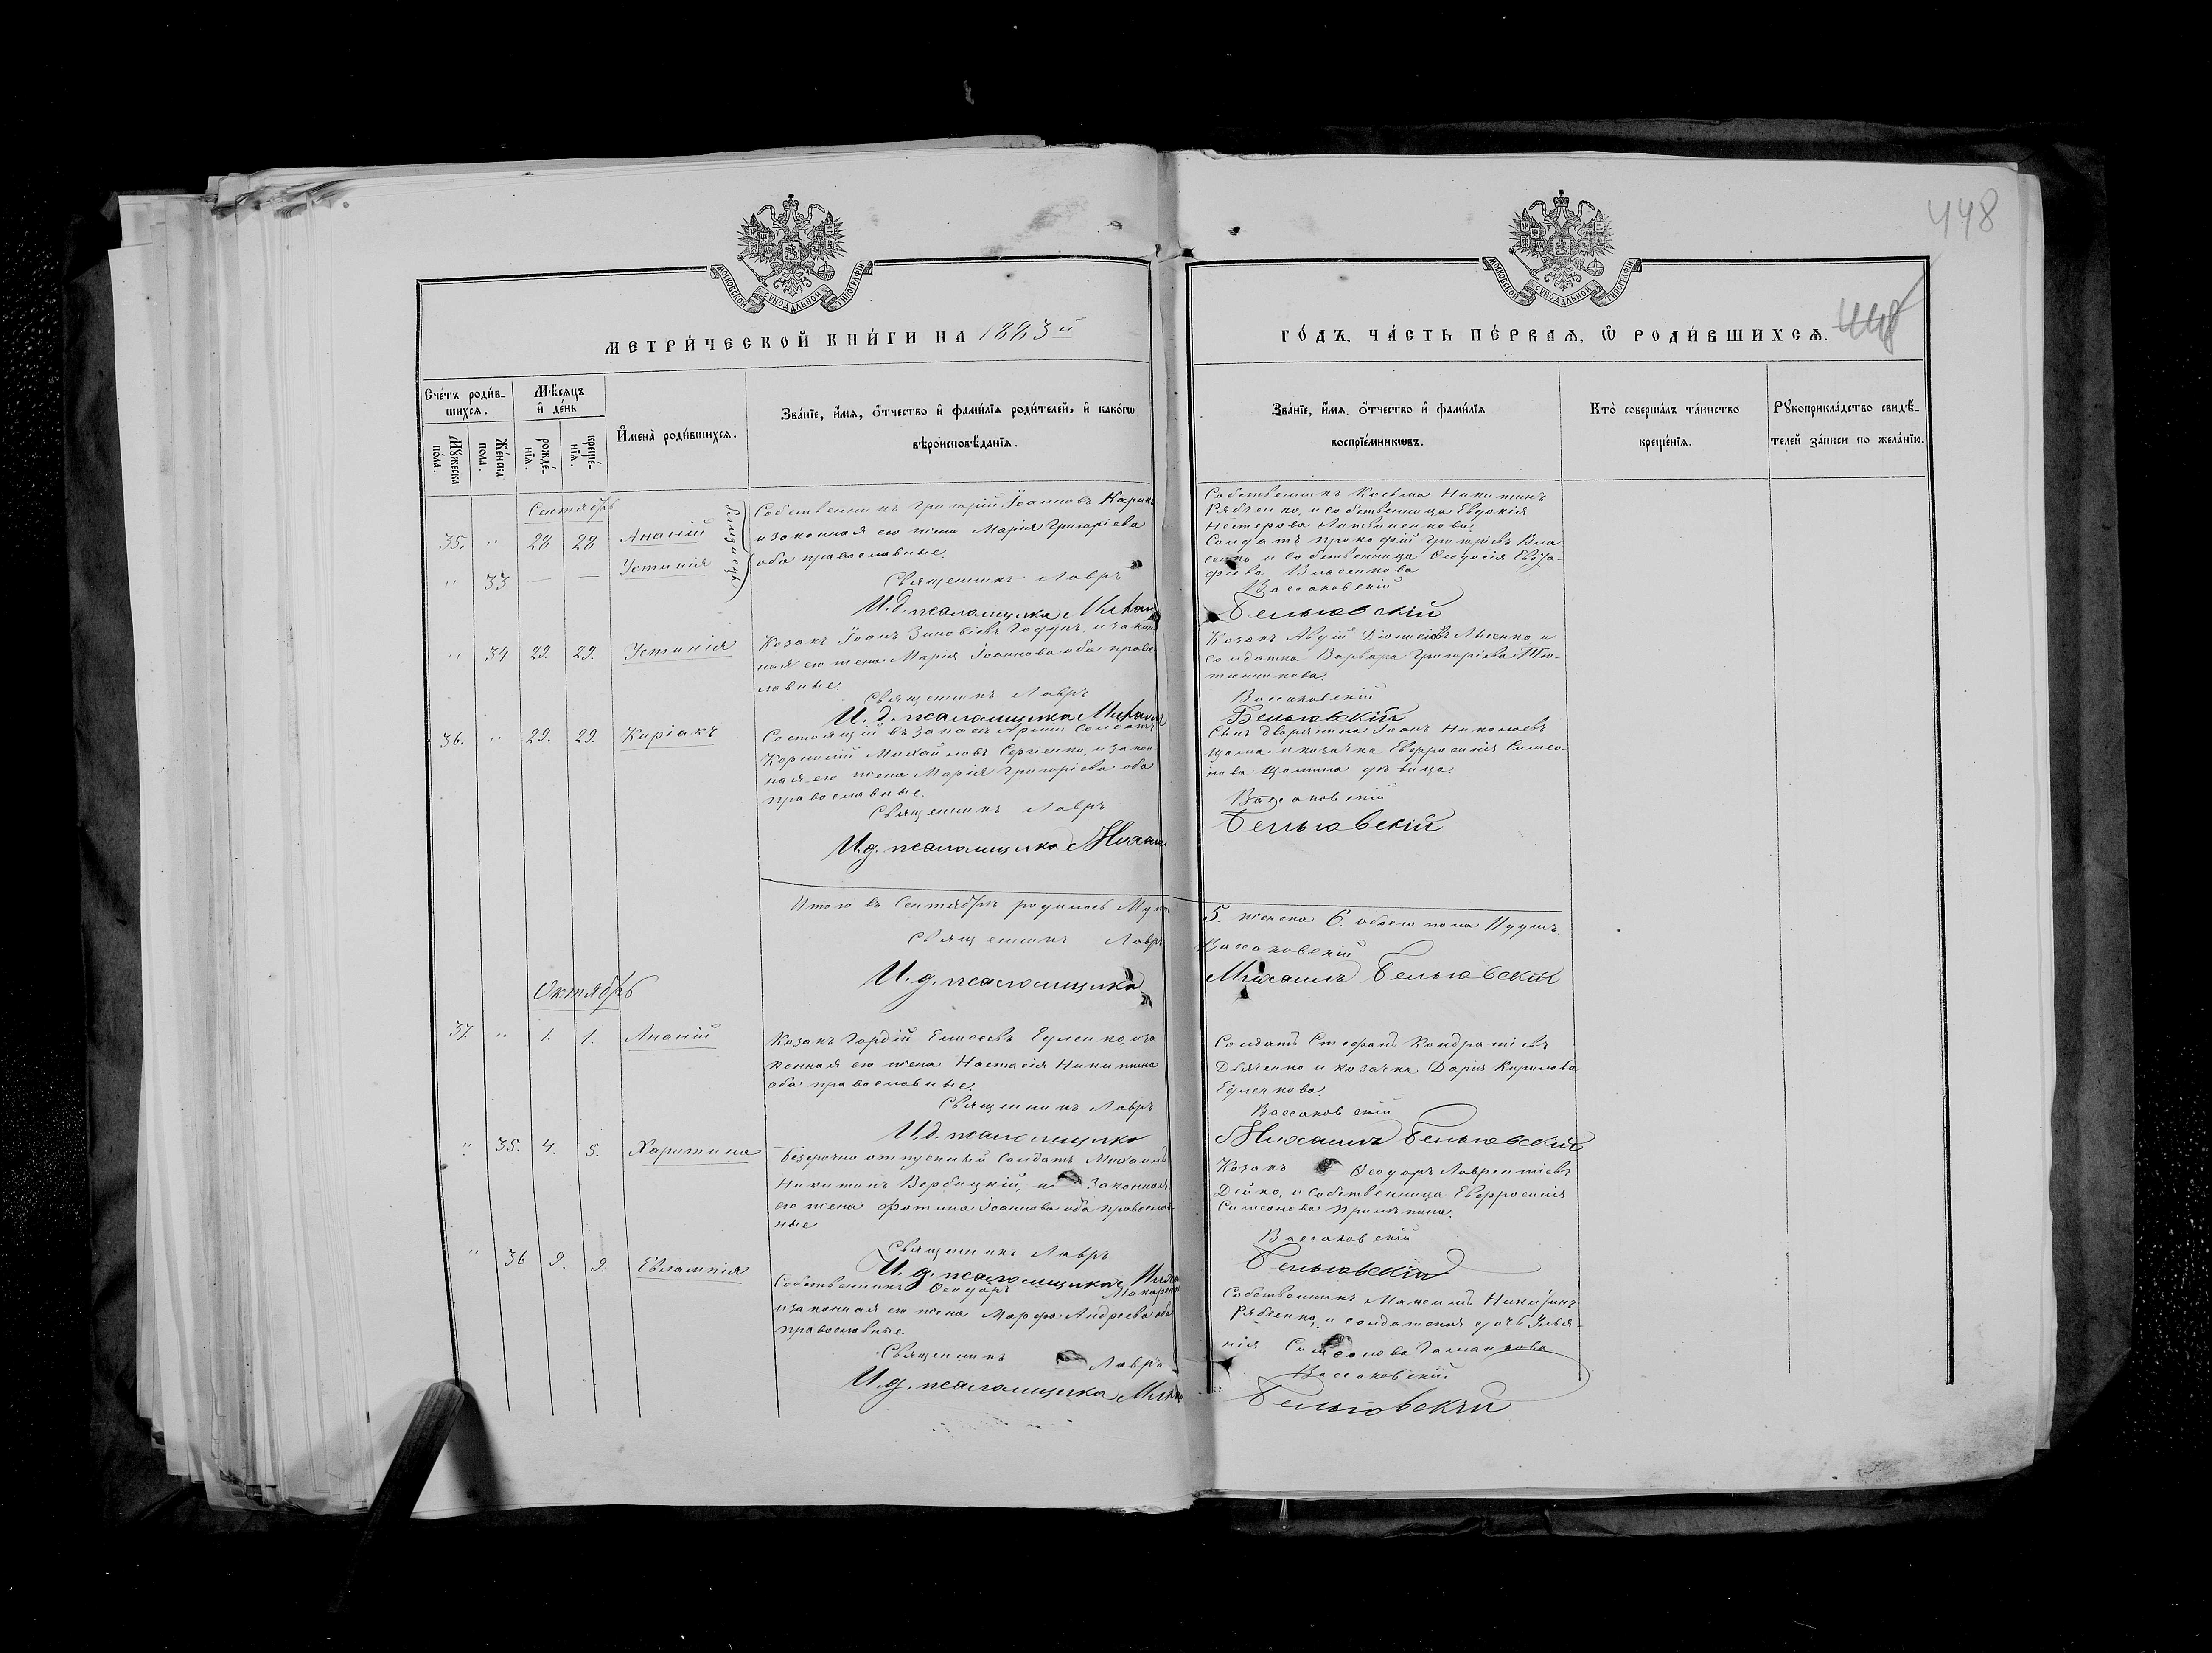 448
МОСКОВСКОЙ СѴНОДАЛЬНОЙ ТИПОГРАФІИ
МОСКОВСКОЙ СѴНОДАЛЬНОЙ ТИПОГРАФІИ
МЕТРИ́ЧЕСКОЙ КНИ́ГИ НА 1883й
ГО́ДЪ, ЧА́СТЬ ПЕ́РВАЯ, Ѡ РОДИ́ВШИХСЯ.
448
Сче́тъ роди́в-
шихся.
Мѣ́сяцъ
и҆ де́нь
Мꙋ́жеска
по́ла.
Же́нска
по́ла.
рожде́-
нїѧ.
креще́-
нїѧ.
И҆мена̀ роди́вшихся.
Зва́нїе, и҆́мя, ѻ҆́тчество и҆ фами́лїя роди́телей, и҆ како́гѡ
вѣроисповѣ́данїя.
Зва́нїе, и҆́мя, ѻ҆́тчество и҆ фами́лїя
воспрїе́мникѡвъ.
Кто̀ соверша́лъ та́инство
креще́нїя.
Рꙋкоприкла́дство свидѣ́-
телей за́писи по жела́нїю.
Сентябрь
35. " 28 28 Ананій
" 33 — — Устинія
близнецы
Собственникъ Григорій Іоанновъ
и законная его жена Марія Григоріева
оба православные.
Священникъ Лавръ
И.д. псаломщика Михаилъ
Собственникъ Косьма Никитинъ
Рябченко, и собственница Евдокія
Нестерова Литвиненкова.
Солдатъ Прокофій Григоріевъ Вла
сенко и собственница Ѳеодосія
Власенкова
Вассаковскій
Бельговскій
" 34 29. 29. Устинія
Козакъ Іоанъ Зиновіевъ и закон
ная его жена Марія Іоаннова оба право
лавные.
Священникъ Лавръ
И.д. псаломщика Михаилъ
Козакъ Авдій Діонисіевъ и
солдатка Варвара Григоріева
Вассаковскій
Бельговскій
36. " 29. 29. Киріакъ
Состоящій въ запасѣ Арміи солдатъ
Корнилій Михайловъ Сергіенко, и закон
ная его жена Марія Григоріева оба
православные.
Священникъ Лавръ
И.д. псаломщика Михаилъ
Сынъ дворянина Іоанъ Николаевъ
и козачка Евфросинія Симео
нова дѣвица.
Вассаковскій
Бельговскій
Итого въ Сентябрѣ родилось Муж
5. женска 6. обоего пола 11 душъ.
Священникъ Лавръ
Вассаковскій
И.д. псаломщика
Михаилъ Бельговскій
Октябрь
37. " 1. 1. Ананій
Козакъ Гордій Елисеевъ и за
конная его жена Настасія Никитина
оба православные.
Священникъ Лавръ
И.д. псаломщика
Солдатъ Стефанъ Кондратіевъ
Дьяченко и козачка Дарія Кирилова
Вассаковскій
Михаилъ Бельговскій
" 35. 4. 5. Харитина
Безсрочно отпускный солдатъ Михаилъ
Никитинъ Вербицкій, и законная
его жена Фотина Іоаннова оба православ
ные
Священникъ Лавръ
И.д. псаломщика
Козакъ Ѳеодоръ Лаврентіевъ
Дейко, и собственница Евфросинія
Симеонова
Вассаковскій
Бельговскій
" 36 9. 9. Евлампія
Собственникъ Ѳеодоръ
и законная его жена Марфа Андреева оба
православные.
Священникъ Лавръ
И.д. псаломщика
Собственникъ Максимъ Никитинъ
Рябченко, и солдатская дочь
Вассаковскій
Бельговскій